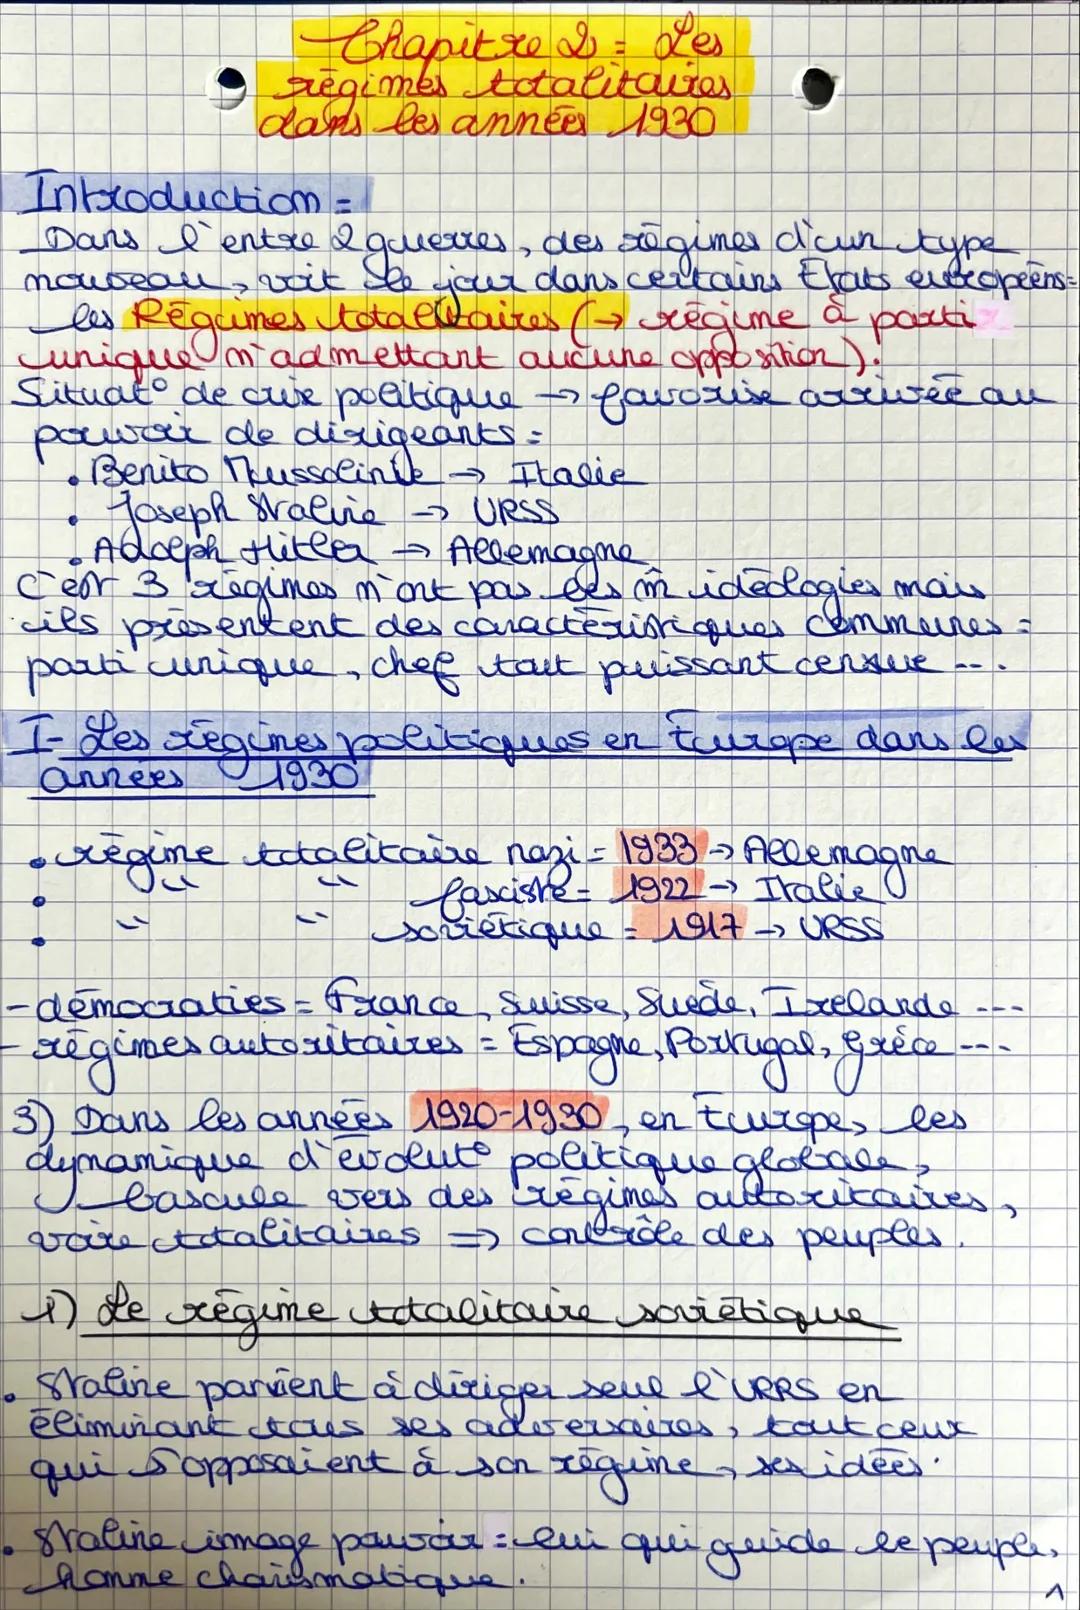 Chapitre 2 = Les
régimes totalitaires
dans les années 1930
Introduction =
Dans l'entre 2 guerres, des régimes d'un type
nouveau, voit le jour dans certains Etats européens=
les Régimes totalitaires (→ régime à parti
unique n'admettant aucune opposition).
Situat° de crise politique → favorise arrivée au
pouvoir de dirigeants =
• Benito Mussolinie → Italie
• Joseph Staline → URSS
• Adolph Hitler → Allemagne
C'est 3 régimes n'ont pas les m̂ idéologies mais
ils présentent des caractéristiques communes =
parti unique, chef tout puissant censure ....
I- Les régimes politiques en Europe dans les
années 1930
• régime totalitaire nazi = 1933 → Allemagne
• " " fasciste = 1922 → Italie
• " " soviétique = 1917 → URSS
- démocraties = France, Suisse, Suède, Irelande ---
- régimes autoritaires = Espagne, Portugal, Grèce ---
3) Dans les années 1920-1930, en Europe, les
dynamique d'évolut° politique globale,
bascule vers des régimes autoritaires,
voire totalitaires => contrôle des peuples.
1) Le régime totalitaire soviétique
• Staline parvient à diriger seul l'URRS en
éliminant tous ses adversaires, tout ceux
qui s'opposaient à son régime, ses idées.
• Staline image pouvoir = lui qui guide le peuple,
homme charismatique.
1